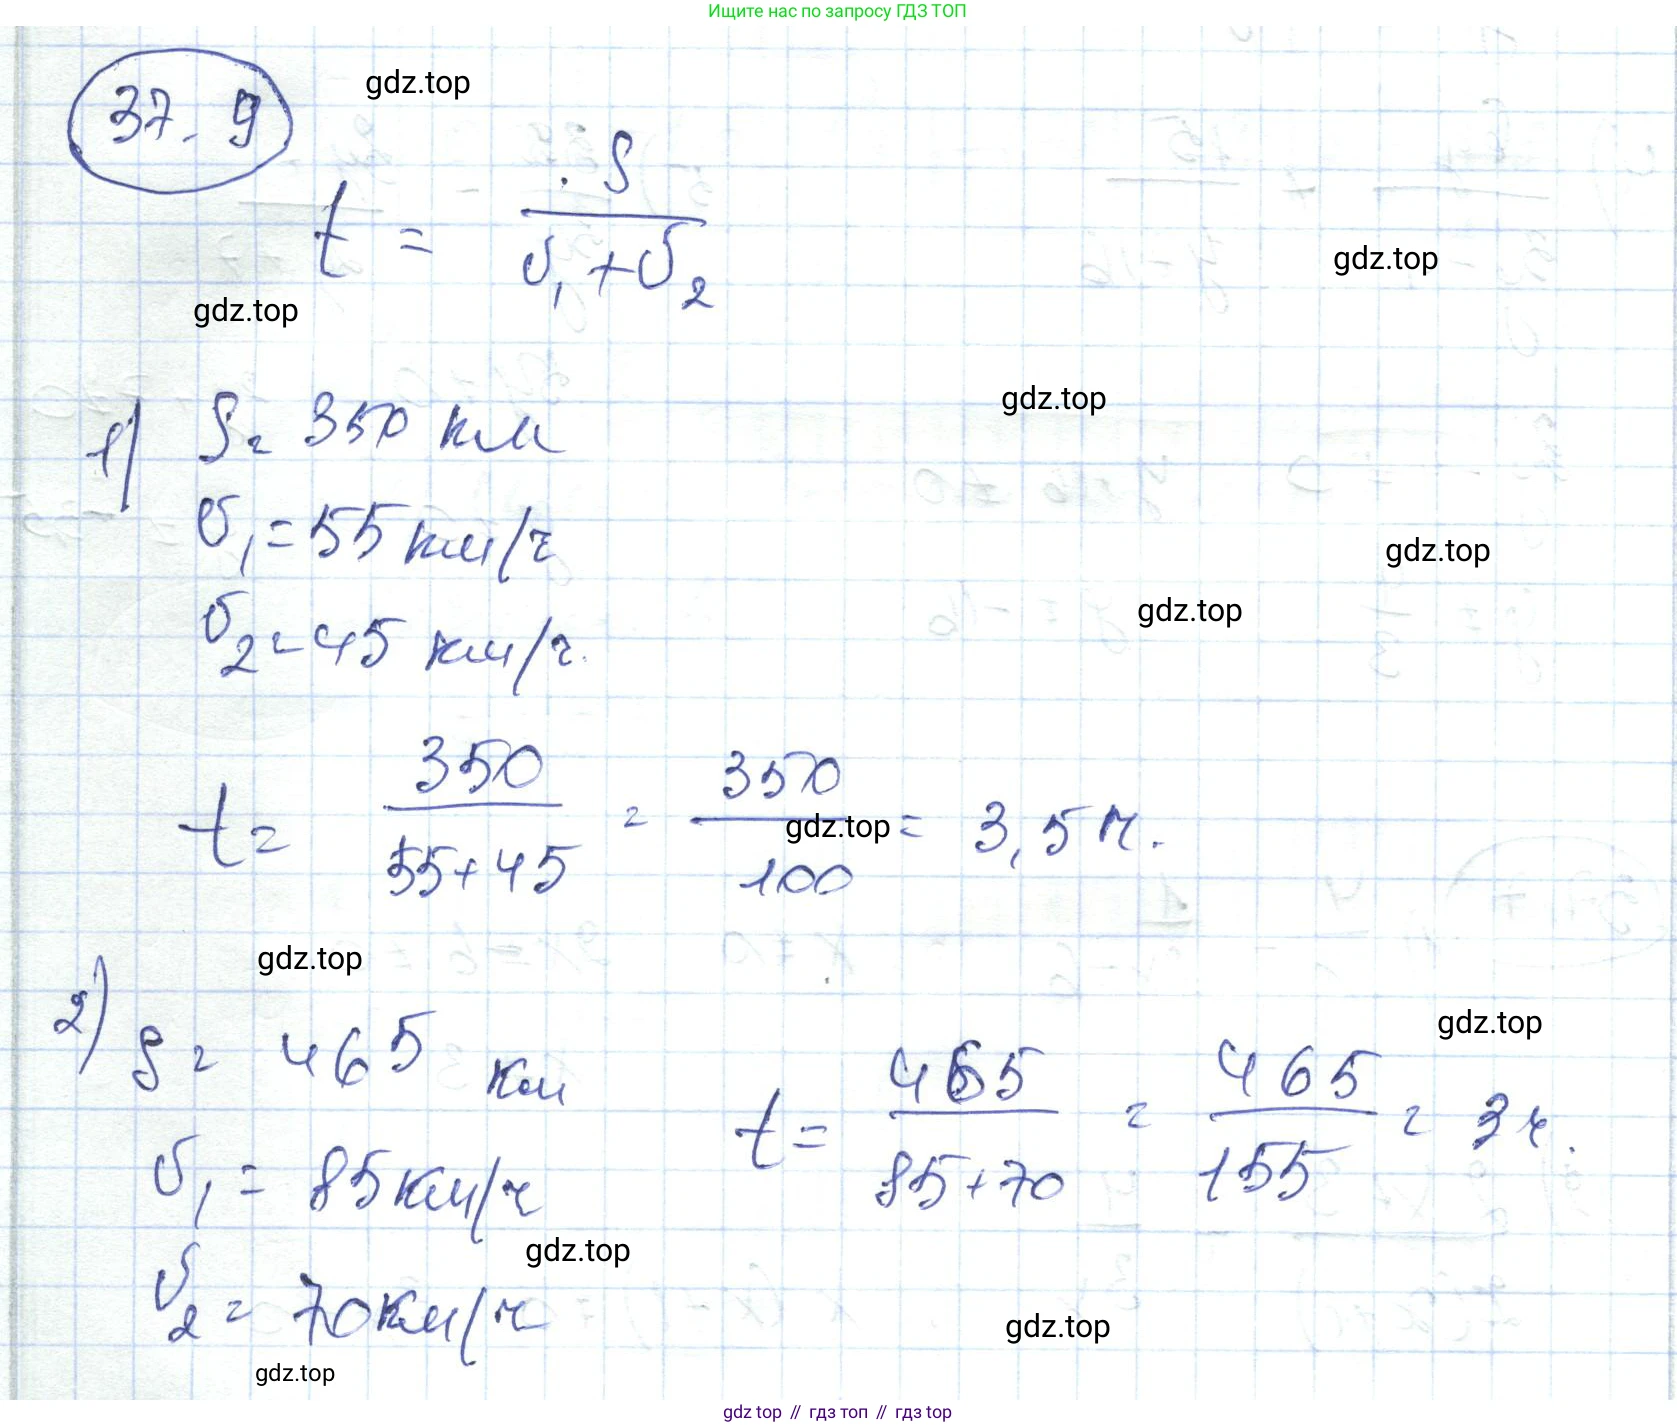 Ищите нас по запросу ГДЗ ТОП
37. 9
gdz.top
t = S / (v₁ + v₂)
gdz.top
gdz.top
1) S = 350 км
gdz.top
v₁ = 55 км/ч
gdz.top
v₂ = 45 км/ч.
gdz.top
t = 350 / (55+45) = 350 / 100 = 3,5 ч.
gdz.top
gdz.top
2) S = 465 км
gdz.top
t = 465 / (85+70) = 465 / 155 = 3 ч.
v₁ = 85 км/ч
gdz.top
v₂ = 70 км/ч
gdz.top
gdz.top
gdz top // гдз топ // гдз top